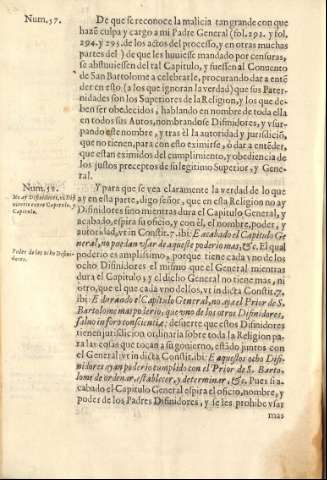 Num. 57.
De que se reconoce la malicia tan grande con que
hazẽ culpa y cargo a mi Padre General (fol. 293. y fol.
294. y 295. de los actos del processo, y en otras muchas
partes del) de que les huuiesse mandado por censuras,
se abstuuiessen del tal Capitulo, y fuessen al Conuento
de San Bartolome a celebrarle, procurando dar a entẽ
der en esto (a los que ignoran la verdad) que sus Pater-
nidades son los Superiores de la Religion, y los que de-
ben ser obedecidos, hablando en nombre de toda ella
en todos sus Autos, nombrandose Difinidores, y vsur-
pando este nombre, y tras èl la autoridad y jurisdiciõ,
que no tienen, para con esto eximirse, ò dar a entẽder,
que estan eximidos del cumplimiento, y obediencia de
los justos preceptos de su legitimo Superior, y Gene-
ral.
Num. 58.
Y para que se vea claramente la verdad de lo que
ay en esta parte, digo señor, que en esta Religion no ay
Difinidores sino mientras dura el Capitulo General, y
acabado, espira su oficio, y con èl, el nombre, poder, y
autoridad, vt in Constit. 7. ibi: E acabado el Capitulo Ge
neral, no puedan vsar de aqueste poderio mas, &c. El qual
poderio es amplissimo, porque tiene cada vno de los
ocho Difinidores el mismo que el General mientras
dura el Capitulo, y el dicho General no tiene mas, ni
otro, que el que cada vno dellos, vt in dicta Constit. 7.
ibi: E durando el Capitulo General, no aya el Prior de S.
Bartolome mas poderio, que vno de los otros Difinidores,
saluo in foro conscientiæ: de suerte que estos Difinidores
tienen jurisdicion ordinaria sobre toda la Religion pa-
ra las cosas que tocan a su gouierno, estãdo juntos con
el General: vt in dicta Constit. ibi: E aquestos ocho Difi-
nidores ayan poderio cumplido con el Prior de S. Barto-
lome de ordenar, establecer, y determinar, &c. Pues si a-
cabado el Capitulo General espira el oficio, nombre, y
poder de los Padres Difinidores, y se les prohibe vsar
mas
Poder de los ocho Difini-
dores.